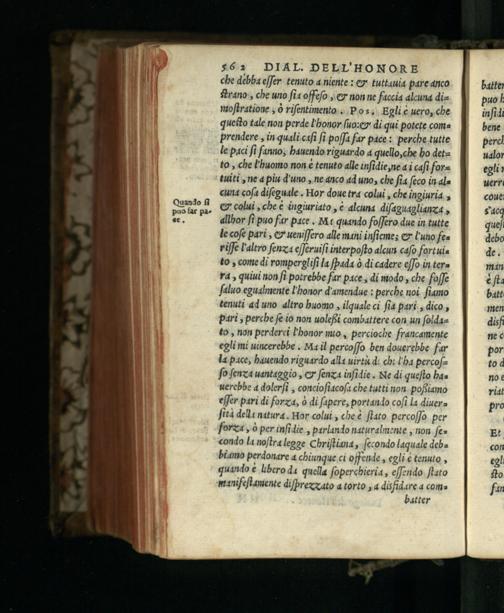 562 DIAL. DELL'HONORE
che debba esser tenuto a niente: & tuttauia pare anco
strano, che uno sia offeso, & non ne faccia alcuna di-
mostratione, ò risentimento. Pos. Egli è uero, che
questo tale non perde l'honor suo: & di qui potete com-
prendere, in quali casi si possa far pace: perche tutte
le paci si fanno, hauendo riguardo a quello, che ho det-
to, che l'huomo non è tenuto alle insidie, ne a i casi for-
tuiti, ne a piu d'uno, ne anco ad uno, che sia seco in al-
cuna cosa diseguale. Hor doue tra colui, che ingiuria,
& colui, che è ingiuriato, è alcuna disaguaglianza,
allhor si puo far pace. Ma quando fossero due in tutte
le cose pari, & uenissero alle mani insieme; & l'uno fe-
risse l'altro senza esserui si interposto alcun caso fortui-
to, come di romperglisi la spada ò di cadere esso in ter-
ra, quiui non si potrebbe far pace, di modo, che fosse
saluo egualmente l'honor d'amendue: perche noi siamo
tenuti ad uno altro huomo, ilquale ci sia pari, dico,
pari, perche se io non uolessi combattere con un solda-
to, non perderei l'honor mio, percioche francamente
egli mi uincerebbe. Ma il percosso ben douerebbe far
la pace, hauendo riguardo alla uirtù di chi l'ha percos-
so senza uantaggio, & senza insidie. Ne di questo ha-
uerebbe a dolersi, conciosiacosa che tutti non possiamo
esser pari di forza, ò di sapere, portando così la diuer-
sità della natura. Hor colui, che è stato percosso per
forza, ò per insidie, parlando naturalmente, non se-
condo la nostra legge Christiana, secondo laquale deb-
biamo perdonare a chiunque ci offende, egli è tenuto,
quando è libero da quella soperchieria, essendo stato
manifestamente disprezzato a torto, a disfidare a com-
batter
Quando si
puo far pa-
ce.